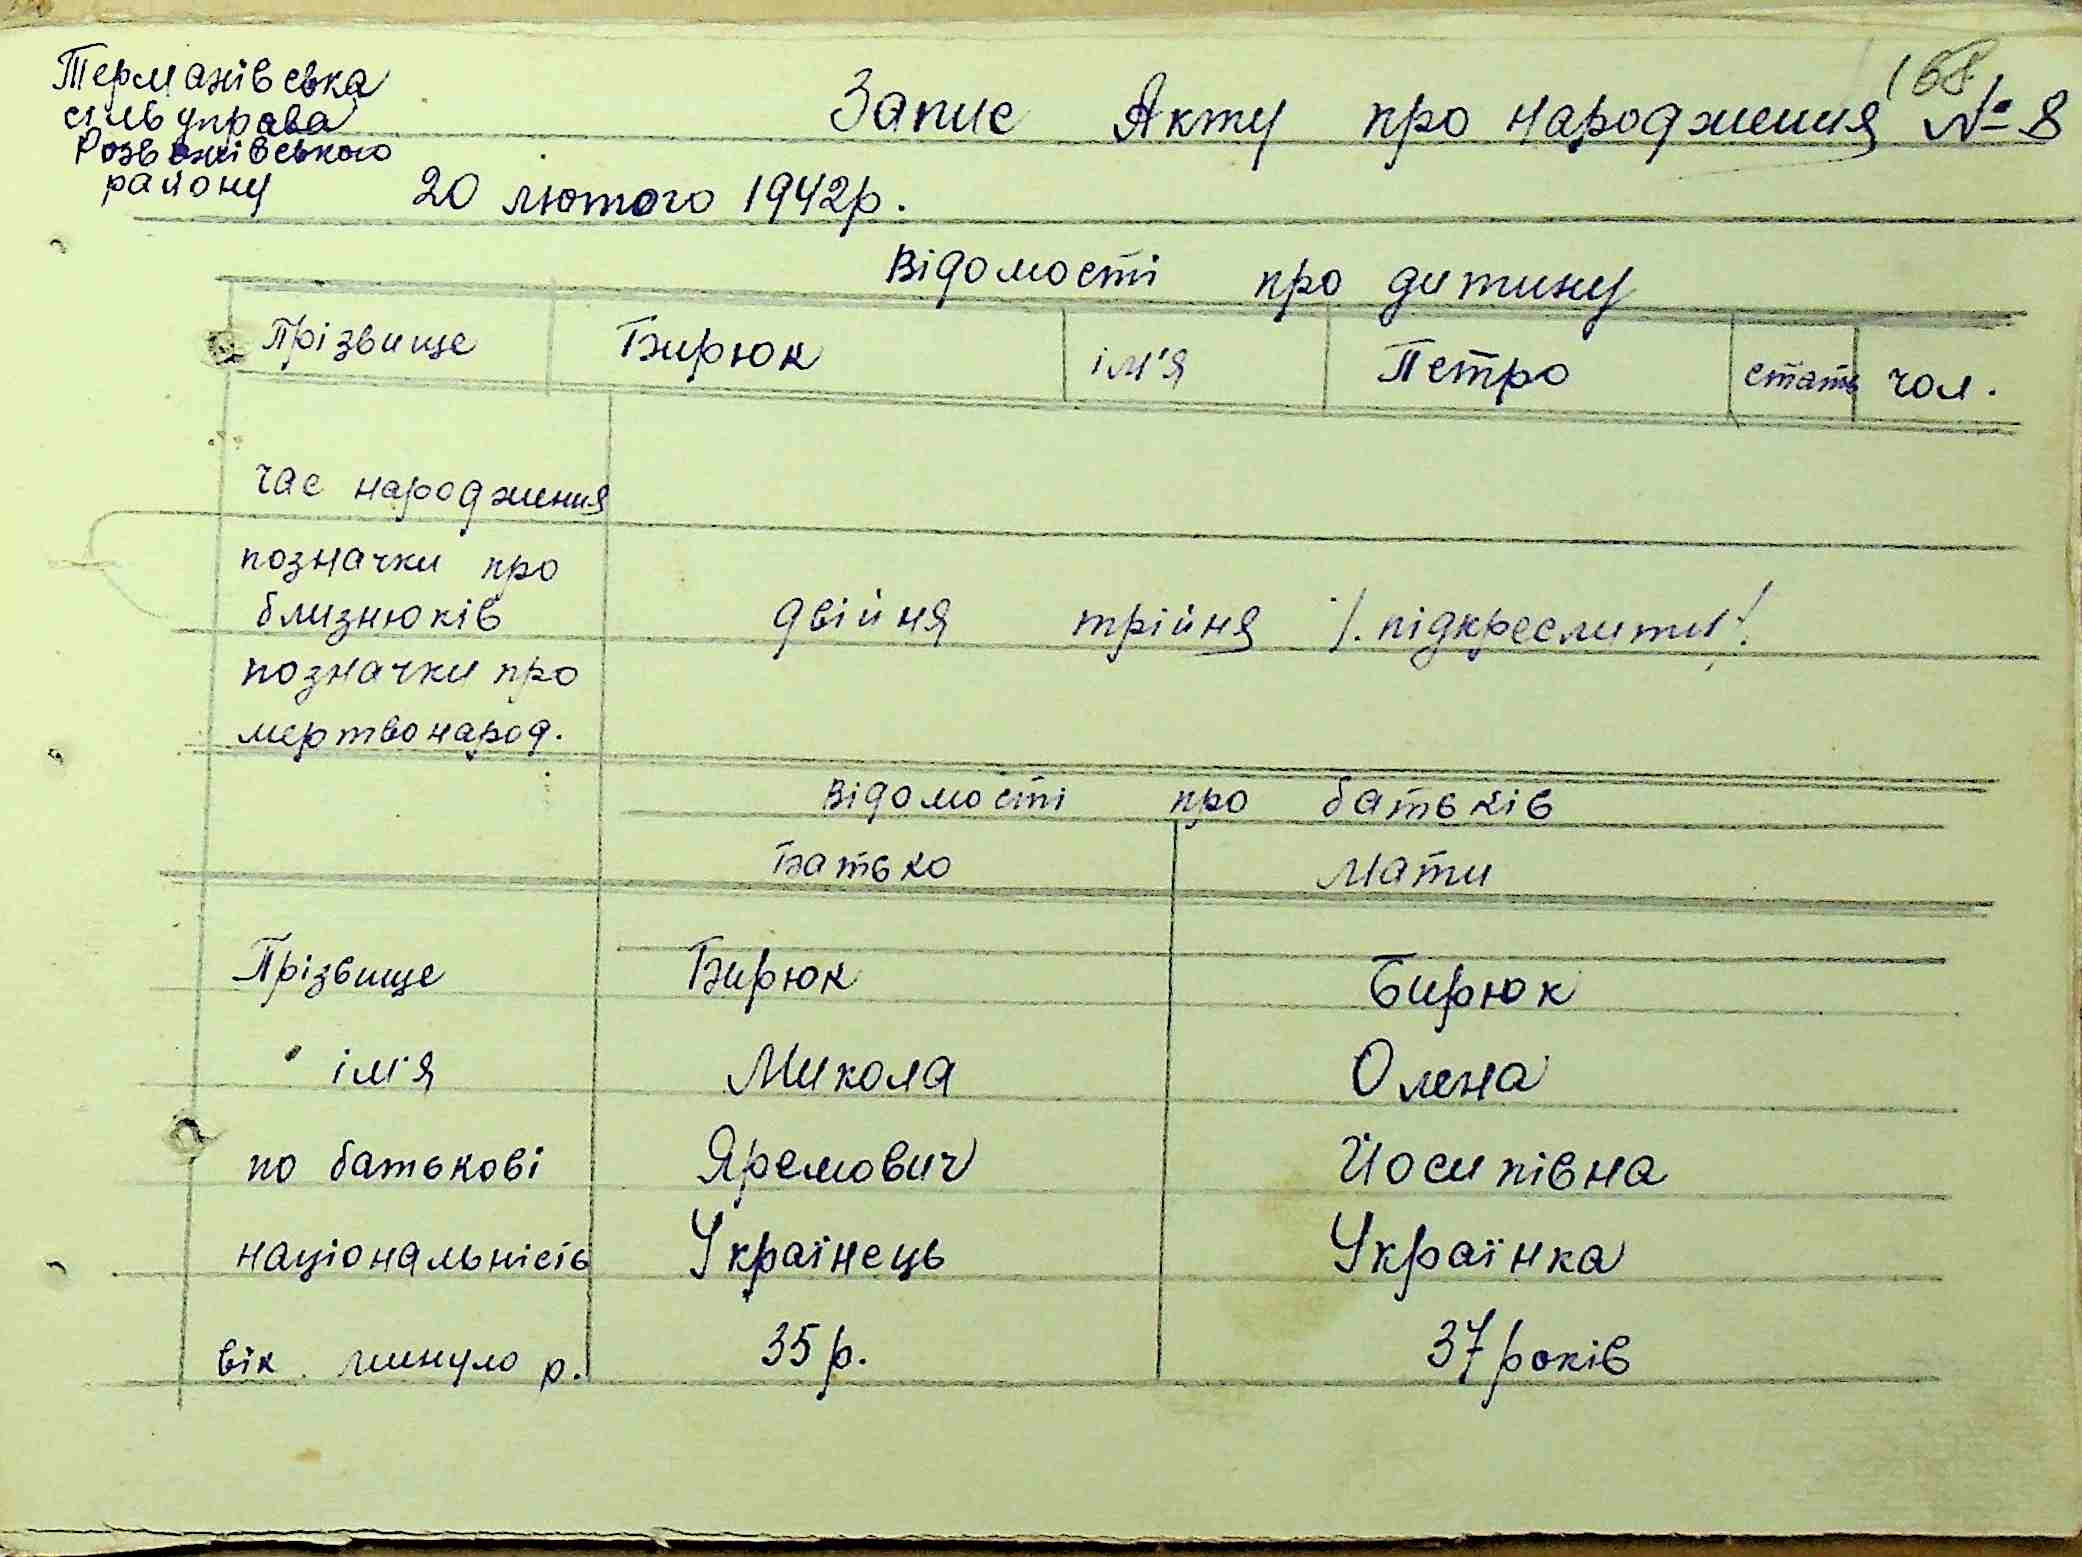 Термахівська
сільуправа
Розважівського
району
168
Запис Акту про народження № 8
20 лютого 1942р.
Відомості про дитину
Прізвище Бирюк ім'я Петро стать чол.
час народження
позначки про
близнюків двійня трійня /.підкреслити/.
позначки про
мертвонарод.
Відомості про батьків
Батько Мати
Прізвище Бирюк Бирюк
ім'я Микола Олена
по батькові Яремович Йосипівна
національність Українець Українка
вік минуло р. 35 р. 37 років